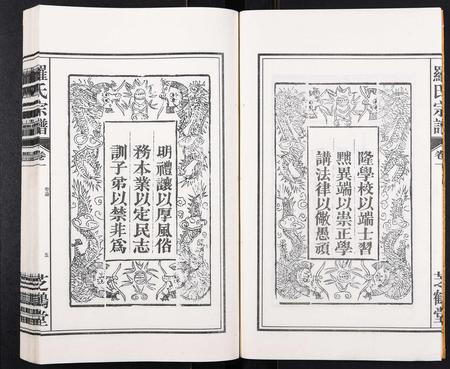 隆學校以端士習
黜異端以崇正學
講法律以儆愚頑
明禮讓以厚風俗
務本業以定民志
訓子弟以禁非為
羅氏宗譜
卷一
五
芝鶴堂
羅氏宗譜
卷一
芝鶴堂